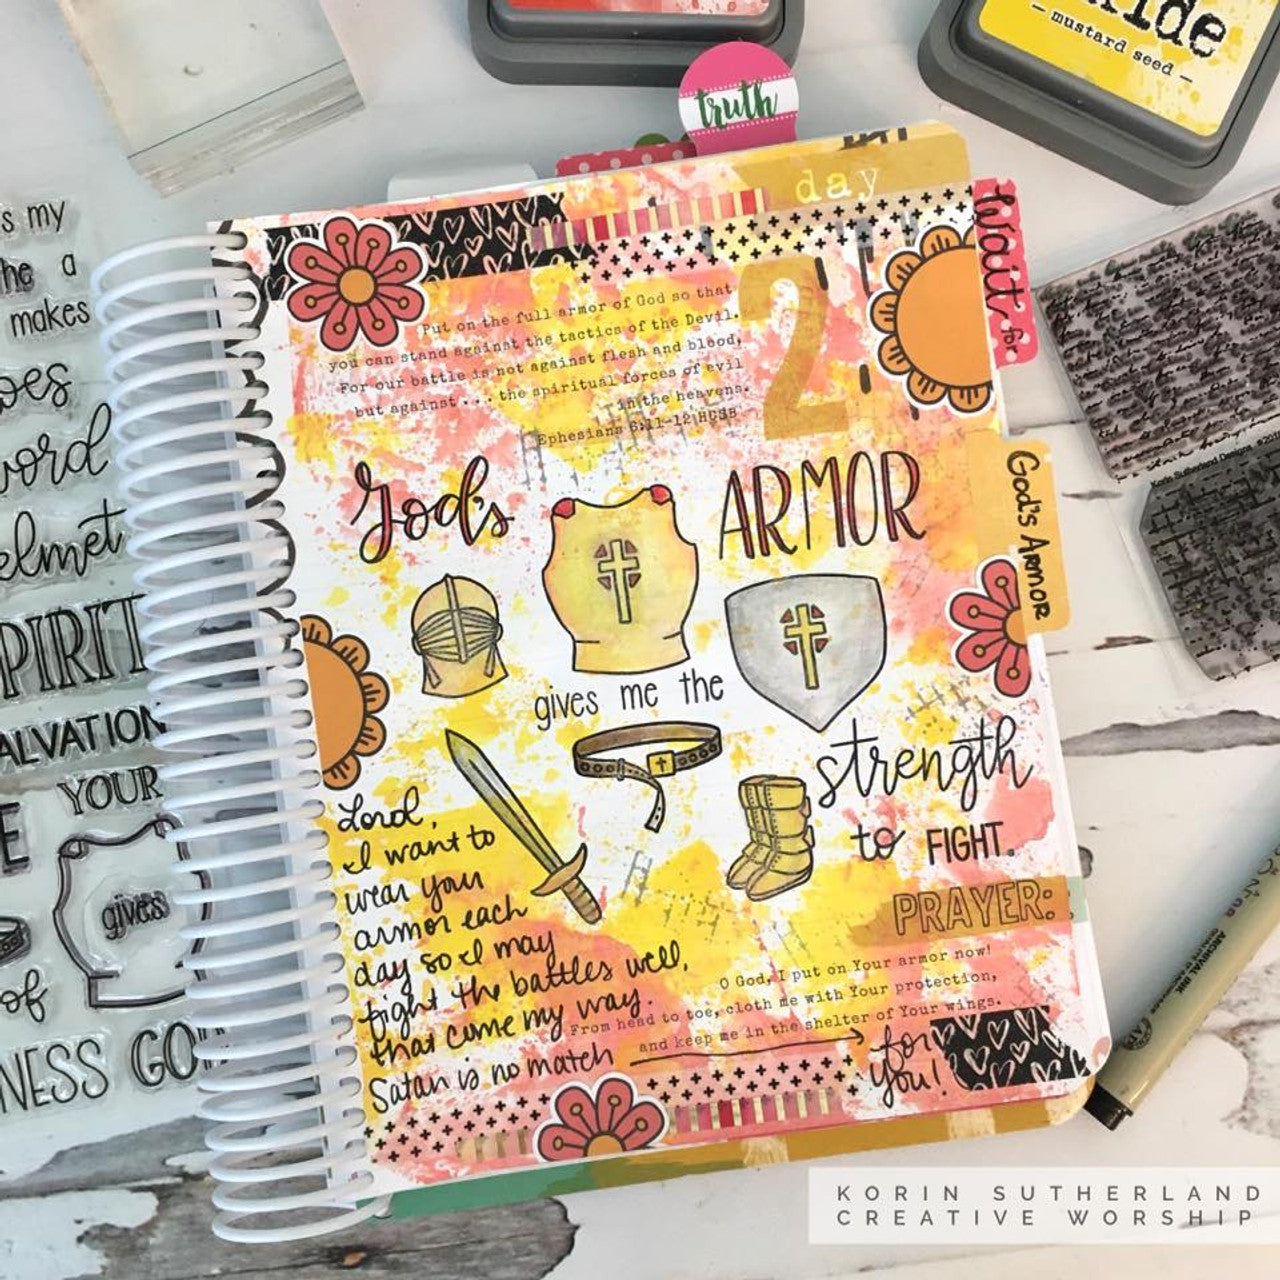 ide
— mustard seed —
truth
day
2
wait for
Put on the full armor of God so that
you can stand against the tactics of the Devil.
For our battle is not against flesh and blood,
but against . . . the spiritual forces of evil
in the heavens.
Ephesians 6:11-12 HCSB
God's ARMOR
God's ARMOR
gives me the
strength
to FIGHT.
Lord,
I want to
wear your
armor each
day so I may
fight the battles well,
that come my way.
Satan is no match
for
you!
PRAYER:
O God, I put on Your armor now!
From head to toe, cloth me with Your protection,
and keep me in the shelter of Your wings.
s my
he a
makes
oes
word
elmet
SPIRIT
ALVATION
E YOUR
gives
of
NESS GO
Korin Sutherland Designs
ARCHIVAL INK
KORIN SUTHERLAND
CREATIVE WORSHIP